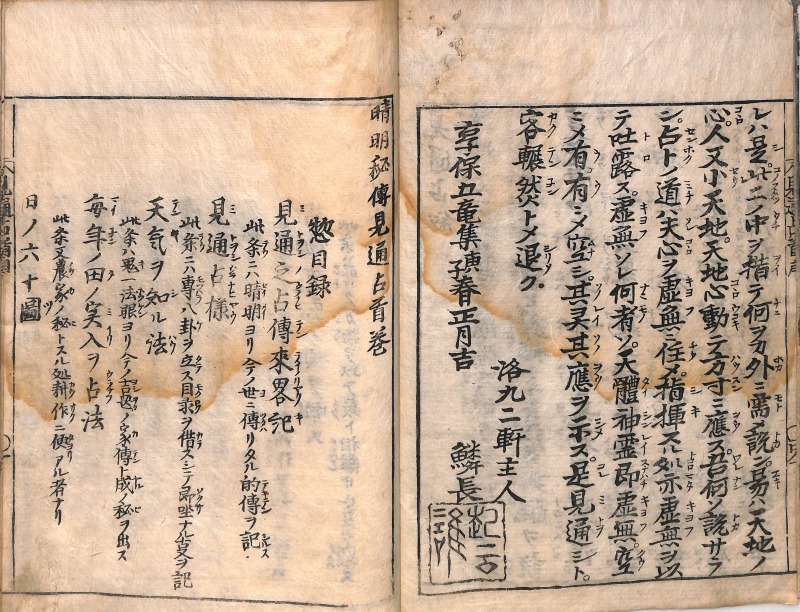 レハ是此二ノ中ヲ指テ何ヲカ外ニ需メ説ン易ハ天地ノ
心人又小天地天地心動テ方寸ニ應ス吾何ノ説サラ
シ占トノ道ハ夫心ヲ虚無ニ住メ指揮スル処亦虚無ヲ以
テ吐露ス虚無ソレ何者ソ天體神霊即虚無空
ミメ有有ミメ空ミ其灵其應ヲ示ス是見通シト
客輾然トメ退ク
享保五竜集庚子春正月吉
洛九二軒主人
鱗長
晴明秘傳見通占首巻
惣目録
見通之占傳來畧記
此条ニハ晴明ヨリ今ノ世ニ傳リタル的傳ヲ記
見通占様
此条ニハ專八卦ヲ立ス目録ヲ借スシテ即坐ナル占ヲ記
天気ヲ知ル法
此条ハ鬼一法眼ヨリ今ノ家傳ト成ノ秘ヲ出ス
毎年ノ田ノ実入ヲ占法
此条又農家ノ秘トスル処耕作ニ便アル者ナリ
日ノ六十圖